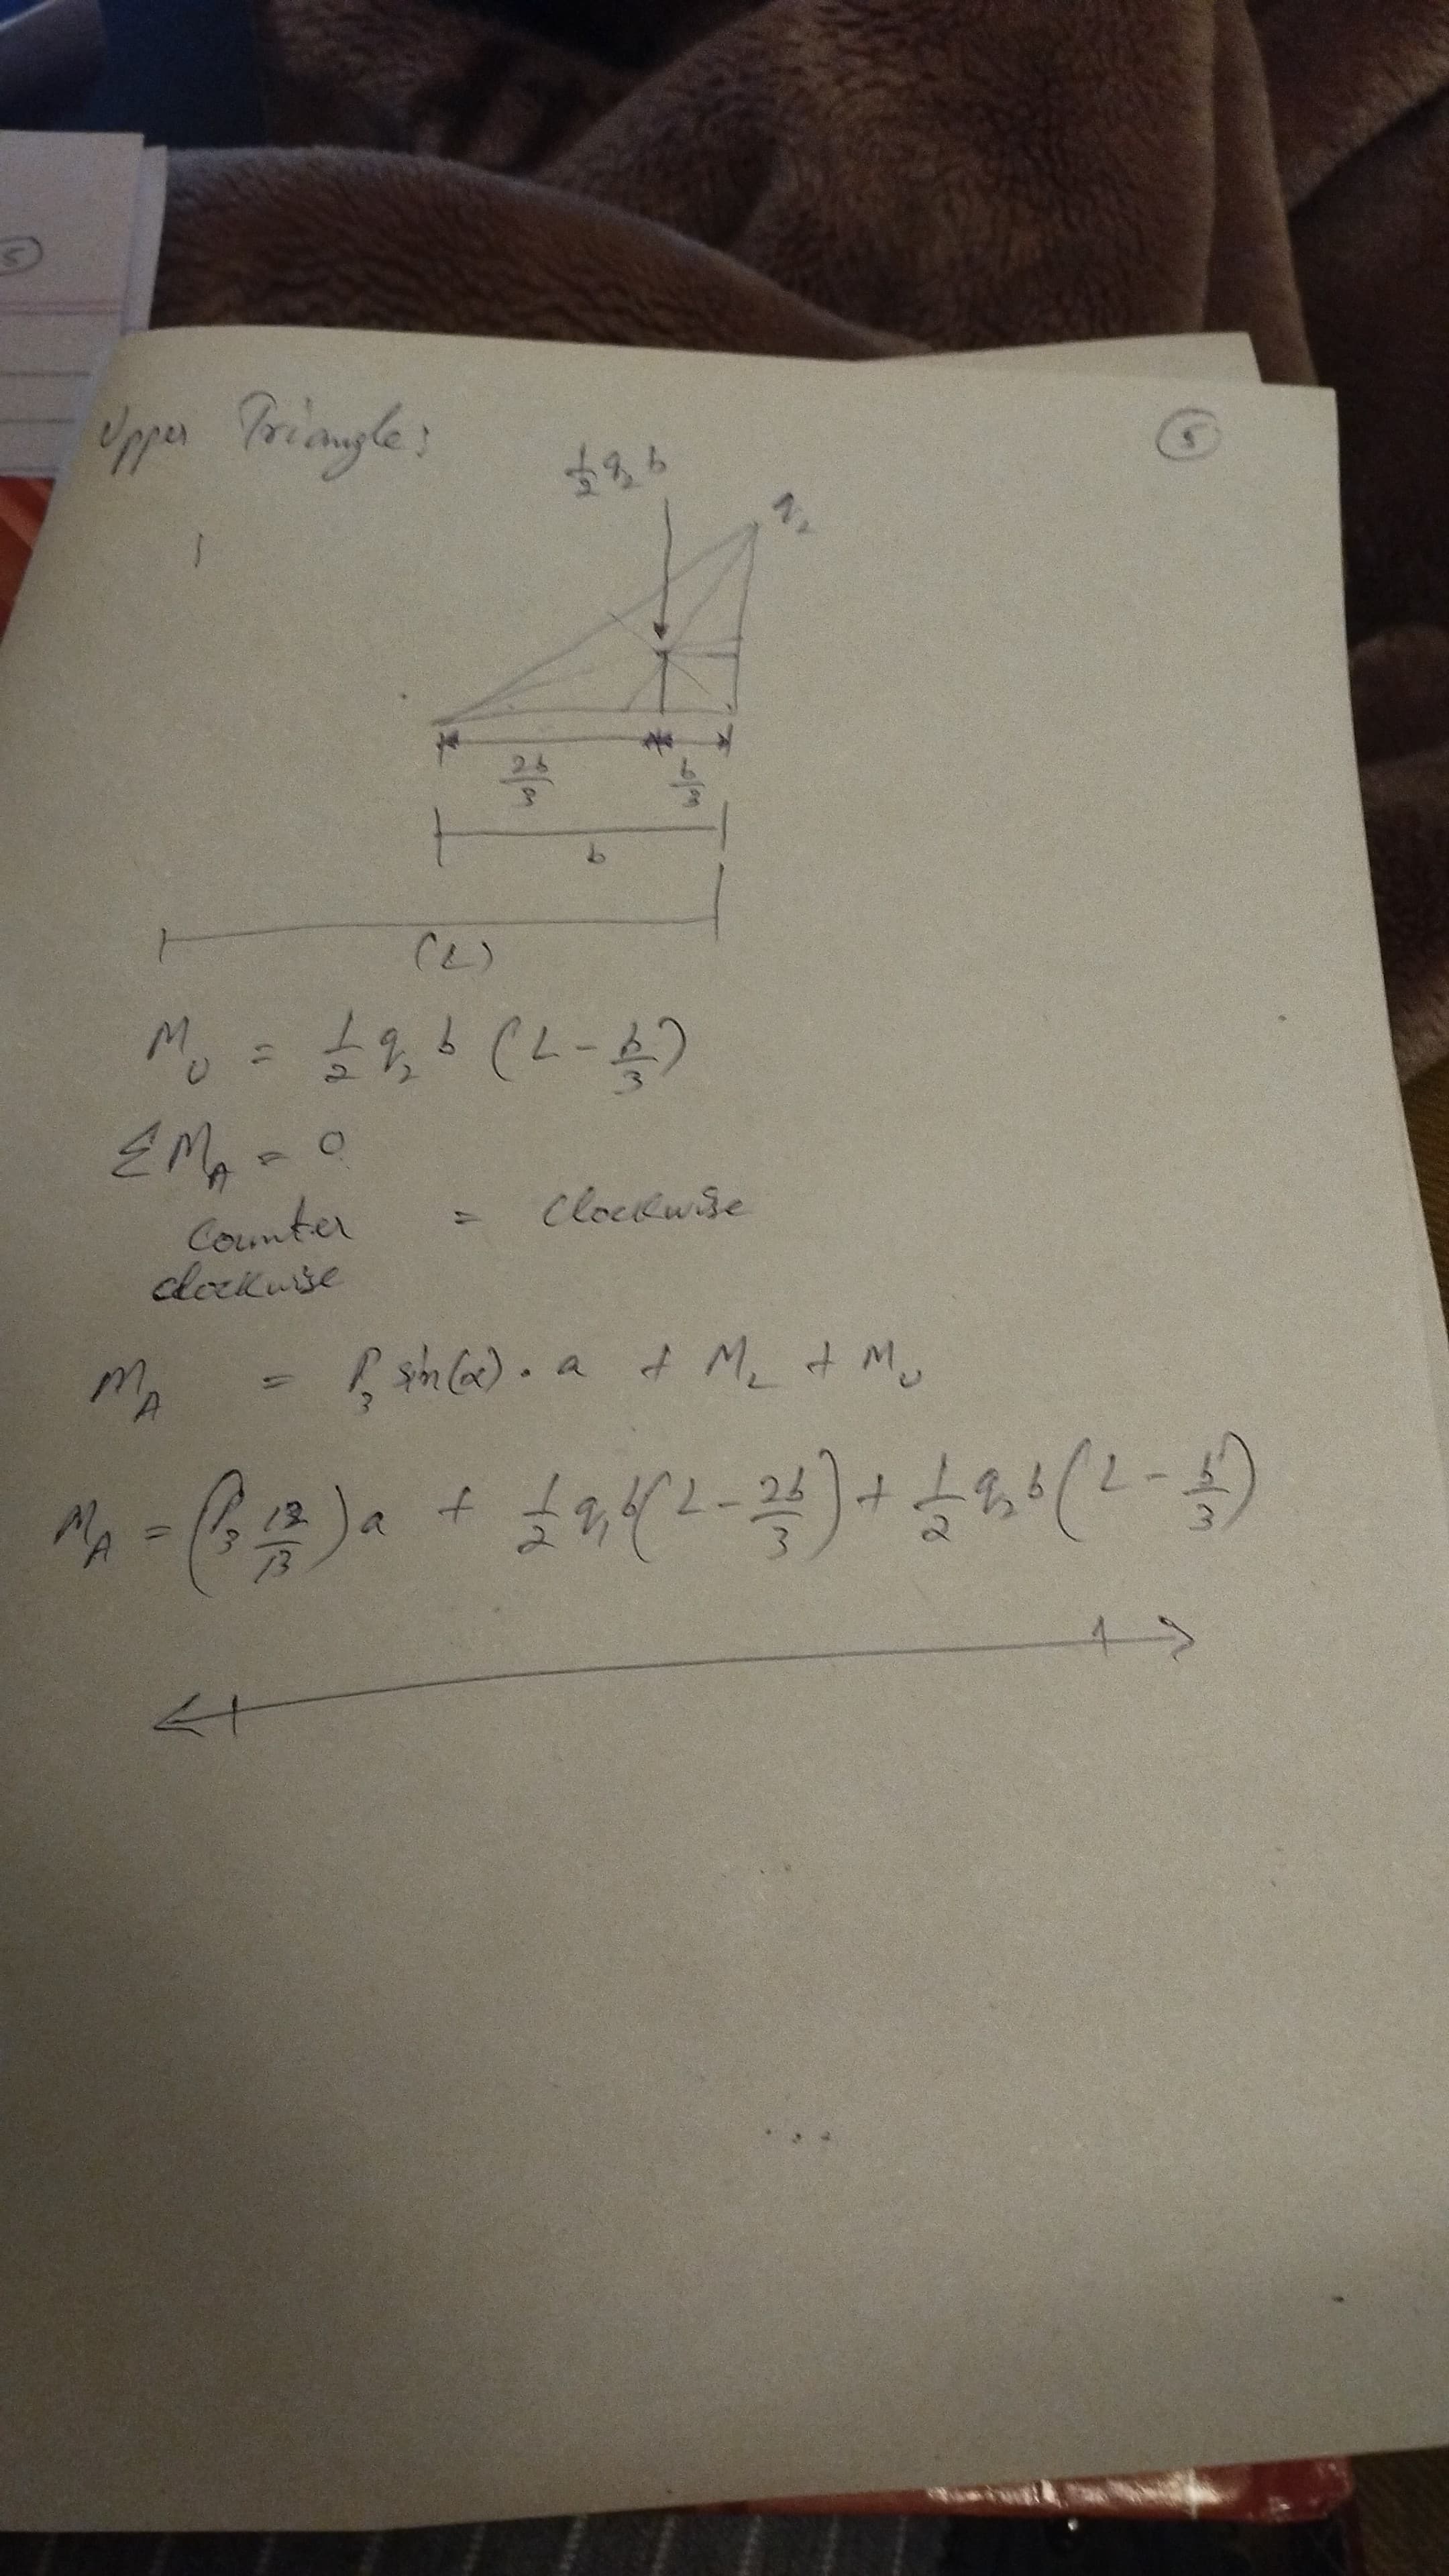 5
Upper Triangle: 5
1/2 q₂ b
q₂
2b/3 b/3
b
(L)
M_U = 1/2 q₂ b (L - b/3)
ΣM_A = 0
Counter = Clockwise
clockwise
M_A = P₃ sin(α) · a + M_L + M_U
M_A = (P₃ 12/13) a + 1/2 q₁ b (L - 2b/3) + 1/2 q₂ b (L - b/3)
...